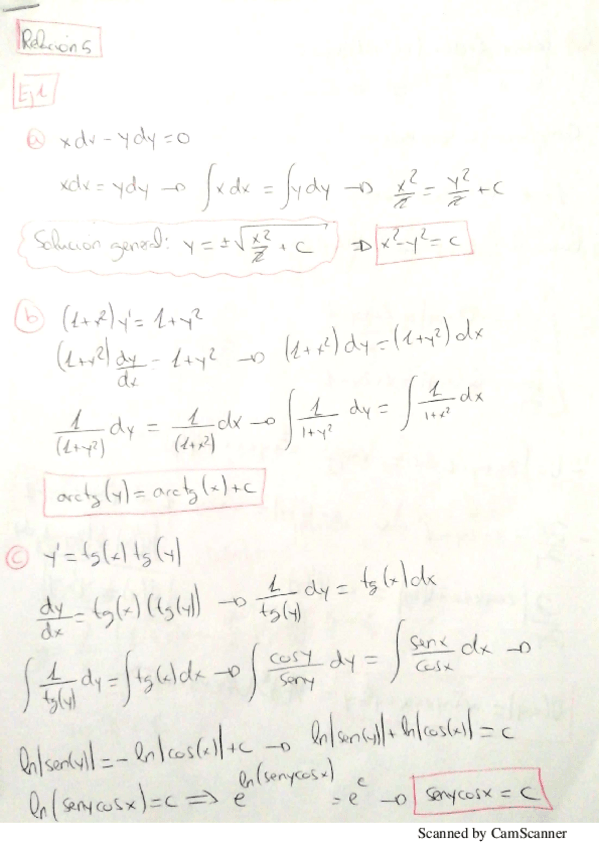 Relación 5
Ej 1
a) xdx - ydy = 0
xdx = ydy → ∫xdx = ∫ydy → x²/2 = y²/2 + C
Solución general: y = ±√(x²/2 + C) ⇒ x² - y² = C
b) (1+x²)y' = 1+y²
(1+x²) dy/dx = 1+y² → (1+x²)dy = (1+y²)dx
1/(1+y²) dy = 1/(1+x²) dx → ∫ 1/(1+y²) dy = ∫ 1/(1+x²) dx
arctg(y) = arctg(x) + C
c) y' = tg(x) tg(y)
dy/dx = tg(x)(tg(y)) → 1/tg(y) dy = tg(x)dx
∫ 1/tg(y) dy = ∫ tg(x)dx → ∫ cosy/seny dy = ∫ senx/cosx dx →
ln|sen(y)| = -ln|cos(x)| + C → ln|sen(y)| + ln|cos(x)| = C
ln(senycosx) = C ⇒ e^ln(senycosx) = e^c → senycosx = C
Scanned by CamScanner